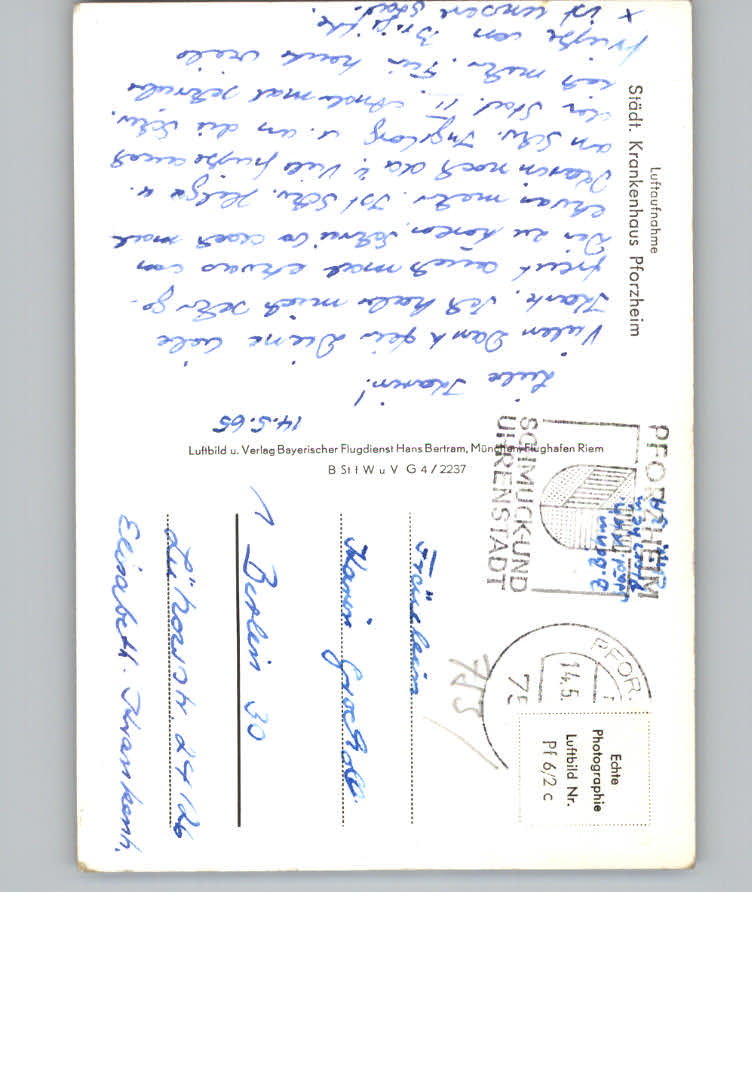 Luftaufnahme
Städt. Krankenhaus Pforzheim
14.5.65
Liebe Karin!
Vielen Dank für Deine liebe
Karte. Ich habe mich sehr ge-
freut auch mal etwas von
Dir zu hören. Schreib doch mal
etwas mehr. Ist Schw. Helga u.
Karin noch da? Viele Grüße auch
an Schw. Ingeborg u. an die Schw.
der Stat. II. Andermal schreibe
ich mehr. Für heute viele
Grüße von Brigitte
x ist unsere Stat.
Luftbild u. Verlag Bayerischer Flugdienst Hans Bertram, München, Flughafen Riem
B St I W u V G 4/2237
PFORZHEIM
SCHMUCK UND
UHRENSTADT
PFOR
14.5.
75
753
Echte
Photographie
Luftbild Nr.
Pf 6/2 c
Fräulein
Karin
1 Berlin 30
Lützowstr. 24/26
Elisabeth-Krankenh.